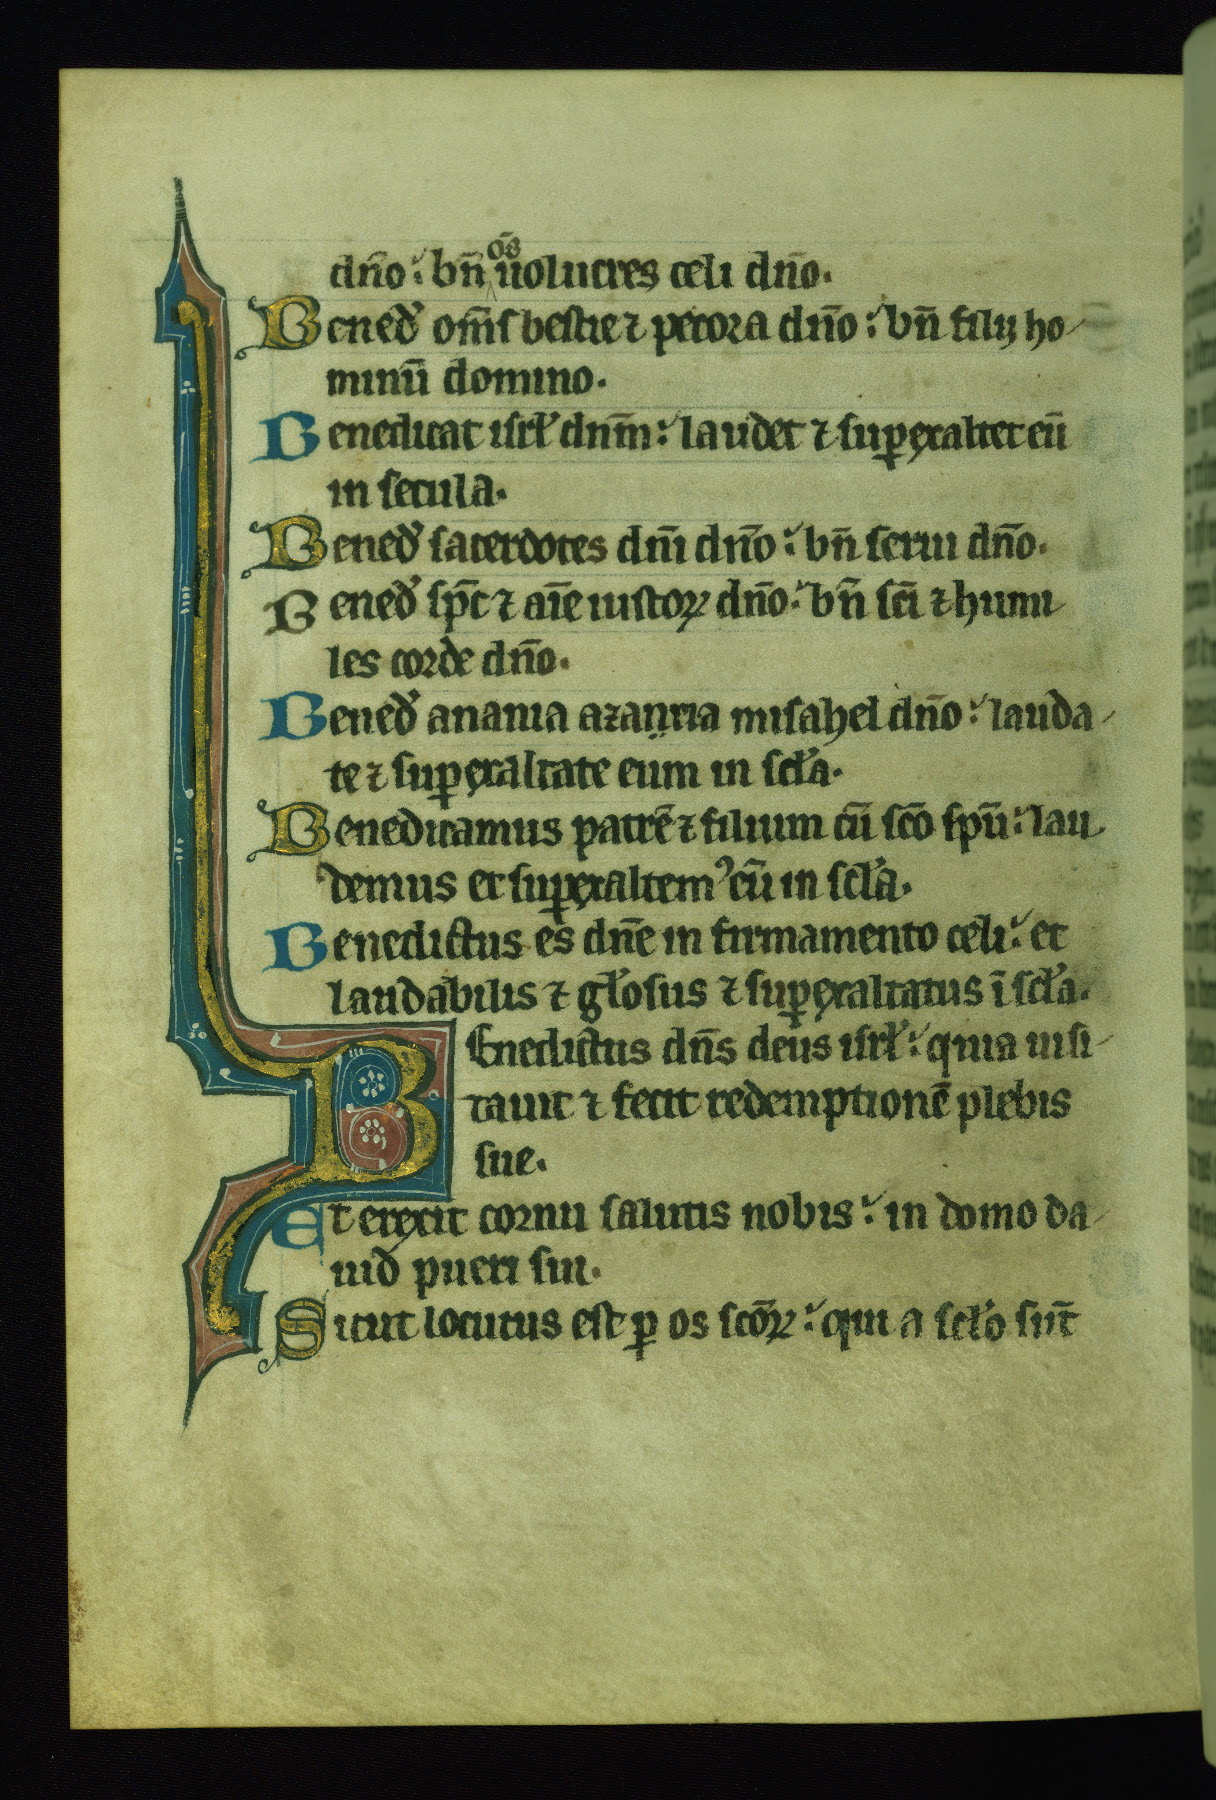 dn̄o ⁏ bn̄ om̄s uolucres celi dn̄o.
Bened̕ om̄s bestie ⁊ pecora dn̄o ⁏ bn̄ filij ho
minū domino.
Benedicat isrl̕ dn̄m ⁏ laudet ⁊ suꝑexaltet eū
in secula.
Bened̕ sacerdotes dn̄i dn̄o ⁏ bn̄ serui dn̄o.
Bened̕ sp̄c ⁊ aīe iustoꝝ dn̄o ⁏ bn̄ sc̄i ⁊ humi
les corde dn̄o.
Bened̕ anania azarria misahel dn̄o ⁏ lauda
te ⁊ suꝑexaltate eum in scl̕a.
Benedicamus patrē ⁊ filium cū sc̄o spū ⁏ lau
demus et suꝑexaltemꝰ eū in scl̕a.
Benedictus es dn̄e in firmamento celi ⁏ et
laudabilis ⁊ gl̕osus ⁊ suꝑexaltatus ī scl̕a.
Benedictus dn̄s deus isrl̕ ⁏ quia uisi
tauit ⁊ fecit redemptionē plebis
sue.
Et erexit cornu salutis nobis ⁏ in domo da
uid pueri sui.
Sicut locutus est ꝑ os sc̄oꝝ ⁏ qui a scl̕o sūt